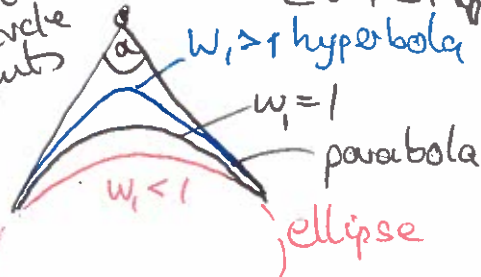 α
w₁ > 1 hyperbola
w₁ = 1
parabola
w₁ < 1
ellipse